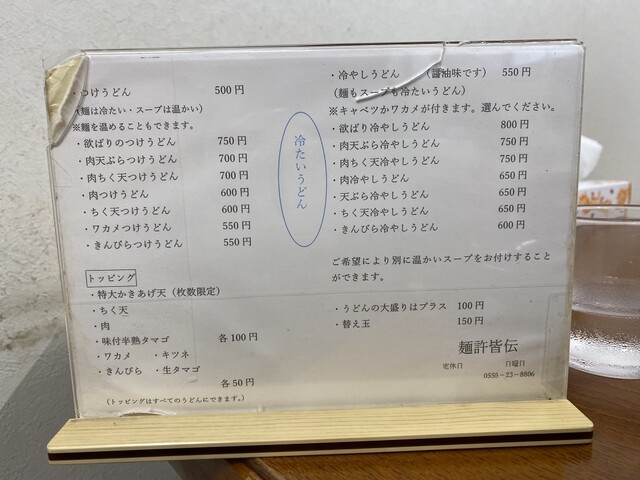 ・つけうどん 500円
(麺は冷たい・スープは温かい)
※麺を温めることもできます。
・欲ばりのつけうどん 750円
・肉天ぷらつけうどん 700円
・肉ちく天つけうどん 700円
・肉つけうどん 600円
・ちく天つけうどん 600円
・ワカメつけうどん 550円
・きんぴらつけうどん 550円
トッピング
・特大かきあげ天（枚数限定）
・ちく天
・肉
・味付半熟タマゴ 各100円
・ワカメ ・キツネ
・きんぴら ・生タマゴ
各50円
(トッピングはすべてのうどんにできます。)
冷たいうどん
・冷やしうどん （醤油味です） 550円
(麺もスープも冷たいうどん)
※キャベツかワカメが付きます。選んでください。
・欲ばり冷やしうどん 800円
・肉天ぷら冷やしうどん 750円
・肉ちく天冷やしうどん 750円
・肉冷やしうどん 650円
・天ぷら冷やしうどん 650円
・ちく天冷やしうどん 650円
・きんぴら冷やしうどん 600円
ご希望により別に温かいスープをお付けすること
ができます。
・うどんの大盛りはプラス 100円
・替え玉 150円
麺許皆伝
定休日 日曜日
0555-23-8806